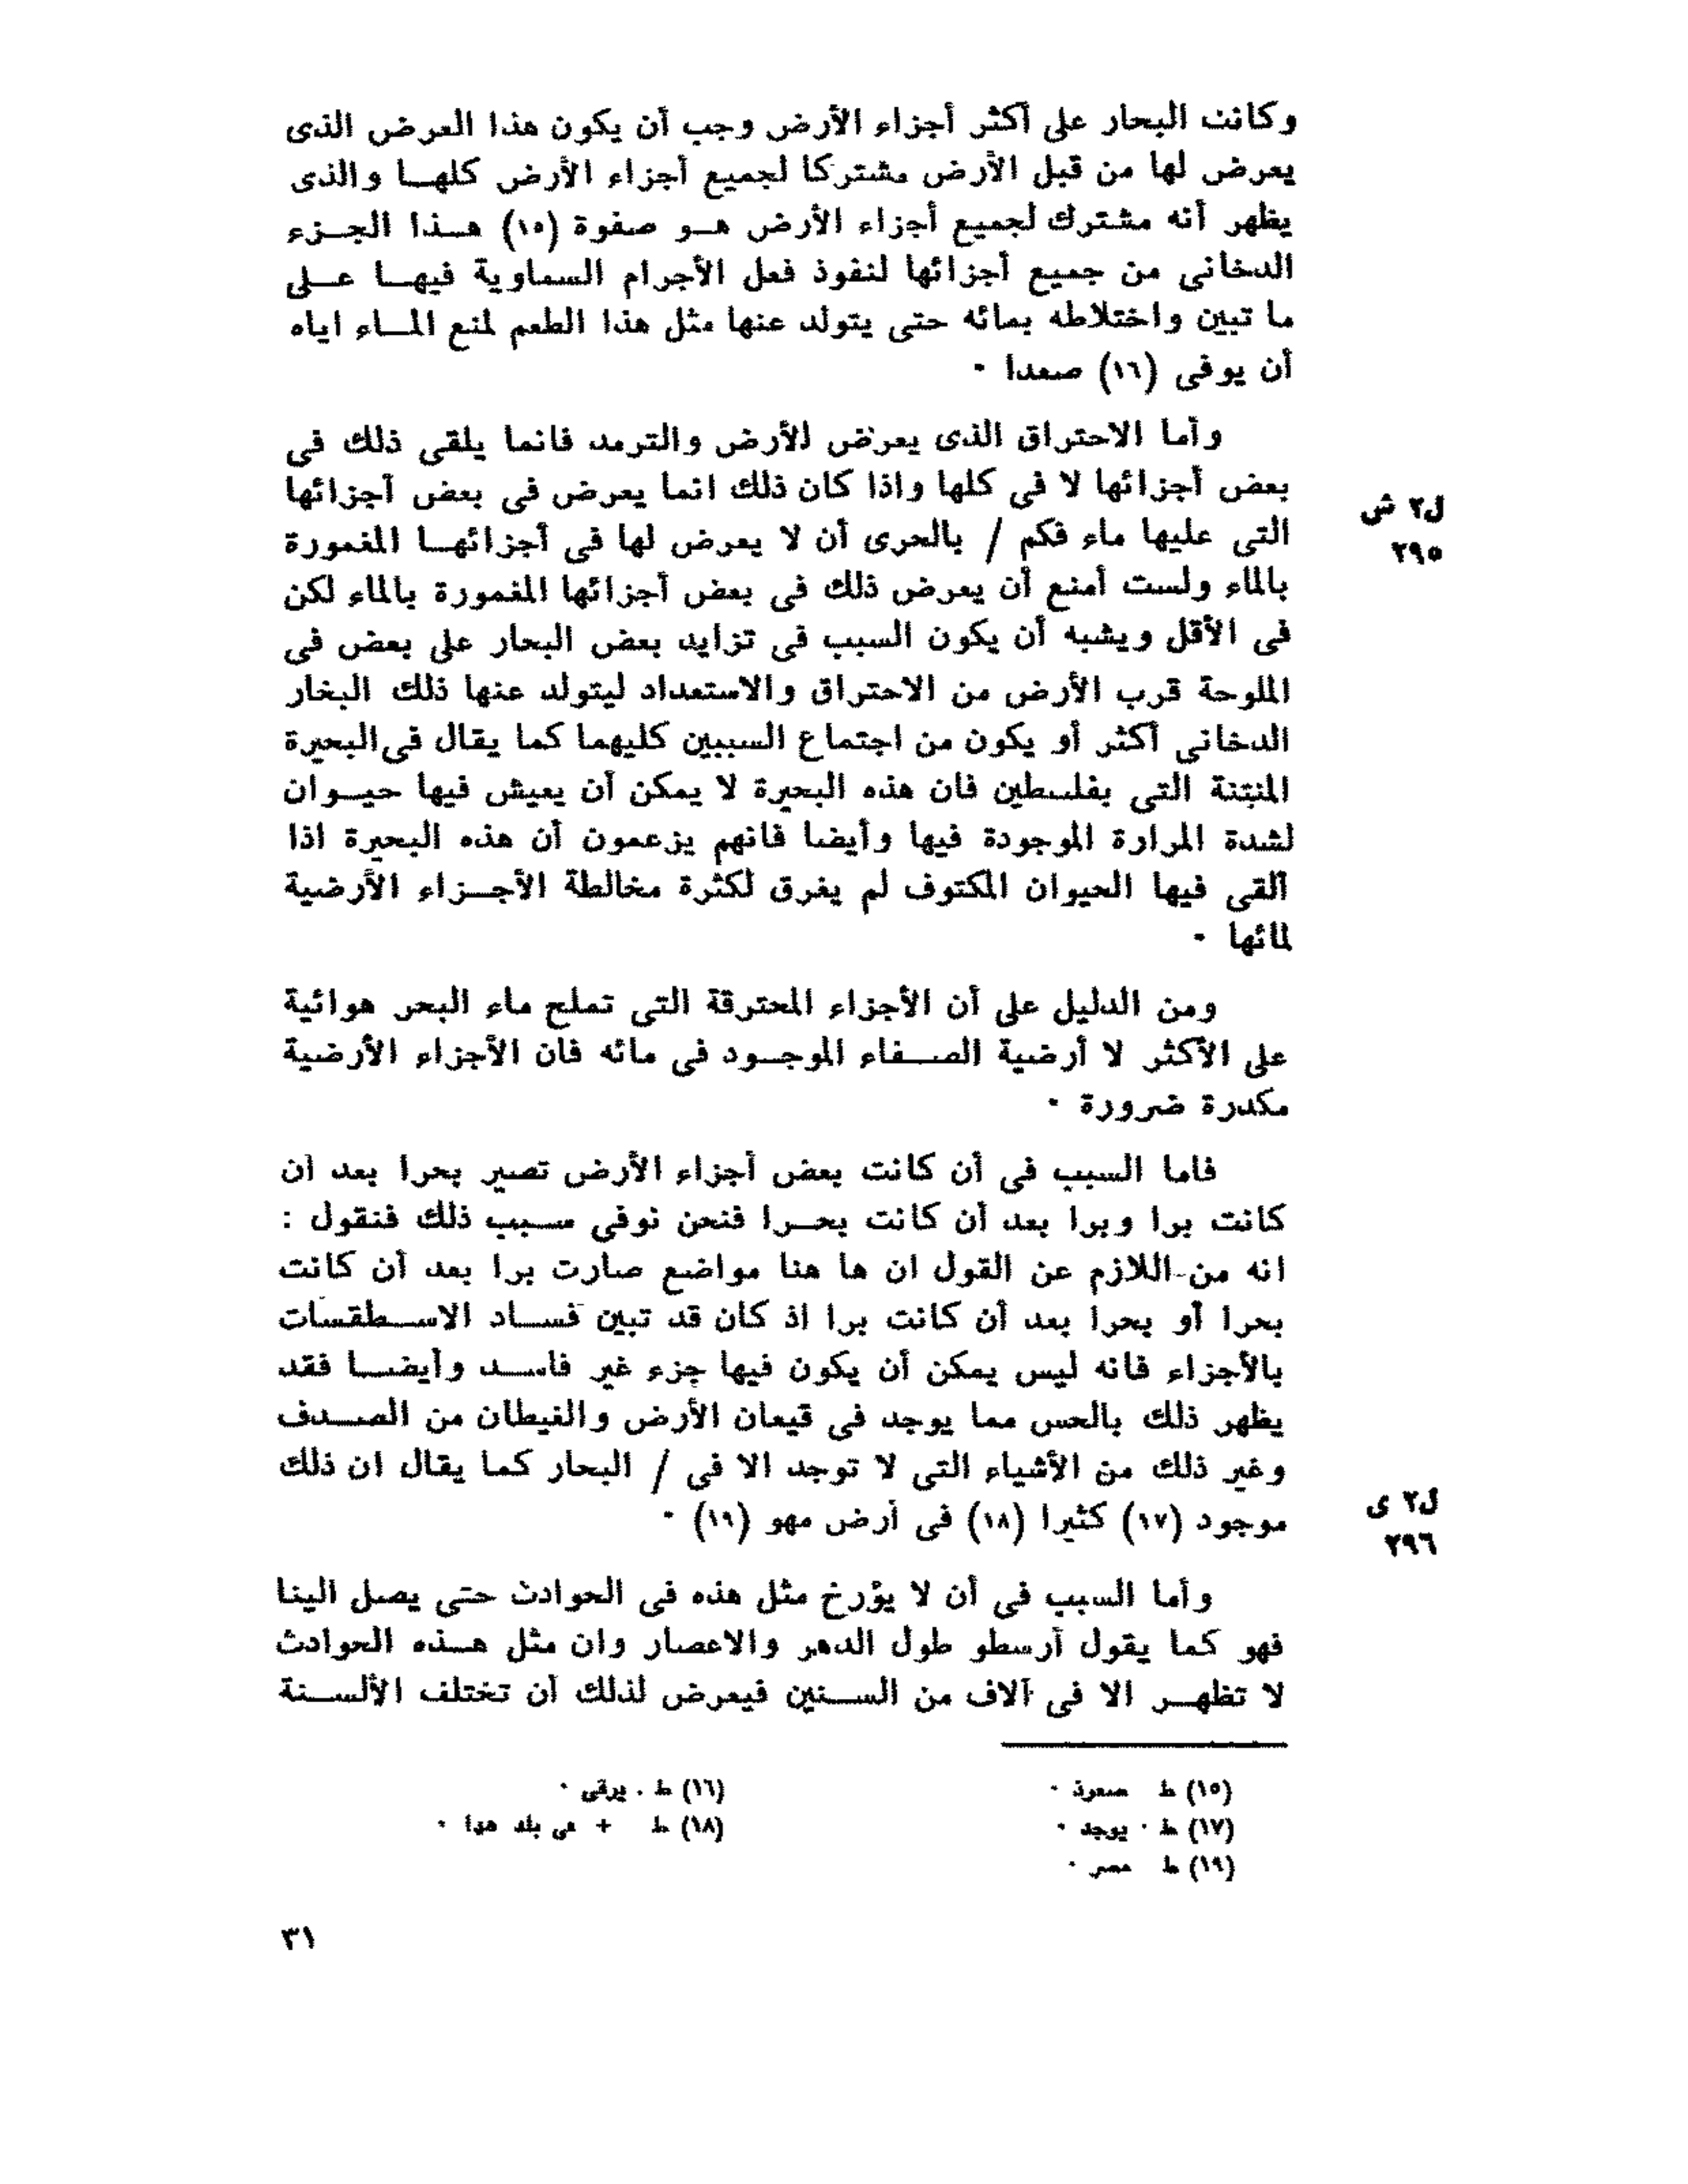 وكانت البحار على أكثر أجزاء الأرض وجب أن يكون هذا العرض الذى
يعرض لها من قبل الأرض مشتركا لجميع أجزاء الأرض كلهــا والذى
يظهر أنه مشترك لجميع أجزاء الأرض هـو صفوة (١٥) هـذا الجـزء
الدخانى من جميع أجزائها لنفوذ فعل الأجرام السماوية فيهـا عـلى
ما تبين واختلاطه بمائه حتى يتولد عنها مثل هذا الطعم لمنع المـاء اياه
أن يوفى (١٦) صعدا ٠
وأما الاحتراق الذى يعرض للأرض والترمد فانما يلقى ذلك فى
بعض أجزائها لا فى كلها واذا كان ذلك انما يعرض فى بعض أجزائها
ل٢ ش
التى عليها ماء فكم / بالحرى أن لا يعرض لها فى أجزائهـا المغمورة
٢٩٥
بالماء ولست أمنع أن يعرض ذلك فى بعض أجزائها المغمورة بالماء لكن
فى الأقل ويشبه أن يكون السبب فى تزايد بعض البحار على بعض فى
الملوحة قرب الأرض من الاحتراق والاستعداد ليتولد عنها ذلك البخار
الدخانى أكثر أو يكون من اجتماع السببين كليهما كما يقال فى البحيرة
المنتنة التى بفلسطين فان هذه البحيرة لا يمكن أن يعيش فيها حيـوان
لشدة المرارة الموجودة فيها وأيضا فانهم يزعمون أن هذه البحيرة اذا
ألقى فيها الحيوان المكتوف لم يغرق لكثرة مخالطة الأجـزاء الأرضية
لمائها ٠
ومن الدليل على أن الأجزاء المحترقة التى تملح ماء البحر هوائية
على الأكثر لا أرضية الصـفاء الموجـود فى مائه فان الأجزاء الأرضية
مكدرة ضرورة ٠
فاما السبب فى أن كانت بعض أجزاء الأرض تصير بحرا بعد أن
كانت برا وبرا بعد أن كانت بحـرا فنحن نوفى سـبب ذلك فنقول :
انه من اللازم عن القول ان ها هنا مواضع صارت برا بعد أن كانت
بحرا أو بحرا بعد أن كانت برا اذ كان قد تبين فسـاد الاسـطقسات
بالأجزاء فانه ليس يمكن أن يكون فيها جزء غير فاسـد وأيضـا فقد
يظهر ذلك بالحس مما يوجد فى قيعان الأرض والغيطان من الصـدف
وغير ذلك من الأشياء التى لا توجد الا فى / البحار كما يقال ان ذلك
ل٢ ى
موجود (١٧) كثيرا (١٨) فى أرض مهو (١٩) ٠
٢٩٦
وأما السبب فى أن لا يؤرخ مثل هذه فى الحوادث حتى يصل الينا
فهو كما يقول أرسطو طول الدهر والاعصار وان مثل هـذه الحوادث
لا تظهـر الا فى آلاف من السـنين فيعرض لذلك أن تختلف الألسـنة
(١٥) ط صعود ٠ (١٦) ط ٠ يرقى ٠
(١٧) ط ٠ يوجد ٠ (١٨) ط + فى بلد هوا ٠
(١٩) ط مصر ٠
٣١